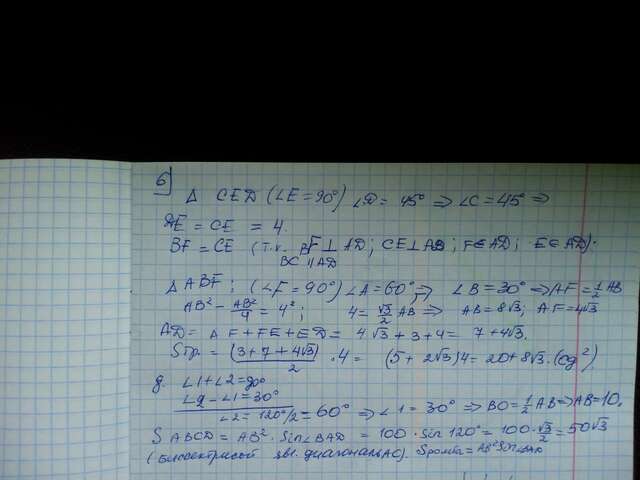 б)
Δ CED (∠E = 90°) ∠D = 45° ⇒ ∠C = 45° ⇒
DE = CE = 4.
BF = CE (т.к. BF ⊥ AD; CE ⊥ AD; F∈AD; E∈AD).
BC || AD
Δ ABF; (∠F = 90°) ∠A = 60° ⇒ ∠B = 30° ⇒ AF = 1/2 AB
AB² - AB²/4 = 4²; 4 = √3/2 AB ⇒ AB = 8√3; AF = 4√3
AD = AF + FE + ED = 4√3 + 3 + 4 = 7 + 4√3.
Sтр. = (3 + 7 + 4√3)/2 · 4 = (5 + 2√3)4 = 20 + 8√3 (ед²)
g. ∠1 + ∠2 = 90°
∠2 - ∠1 = 30°
∠2 = 120°/2 = 60° ⇒ ∠1 = 30° ⇒ BO = 1/2 AB ⇒ AB = 10.
S ABCD = AB² · Sin∠BAD = 100 · Sin 120° = 100 · √3/2 = 50√3
(Биссектрисой явл. диагональ AC). Sромба = AB² Sin∠BAD